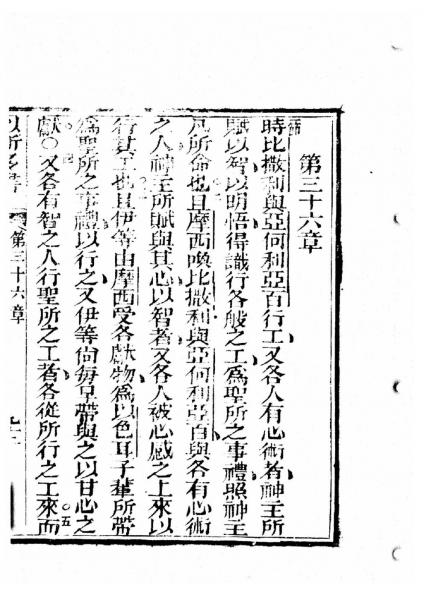 第三十六章
時比撒利與亞何利亞百行工又各人有心術者神主所
賦以智以明悟得識行各般之工為聖所之事禮照神主
凡所命也且摩西喚比撒利與亞何利亞百與各有心術
之人神主所賦與其心以智者又各人被心感之上來以
行其工也且伊等由摩西受各獻物為以色耳子輩所帶
為聖所之事禮以行之又伊等尚每早帶與之以甘心之
獻○又各有智之人行聖所之工者各從所行之工來而
第三十六章